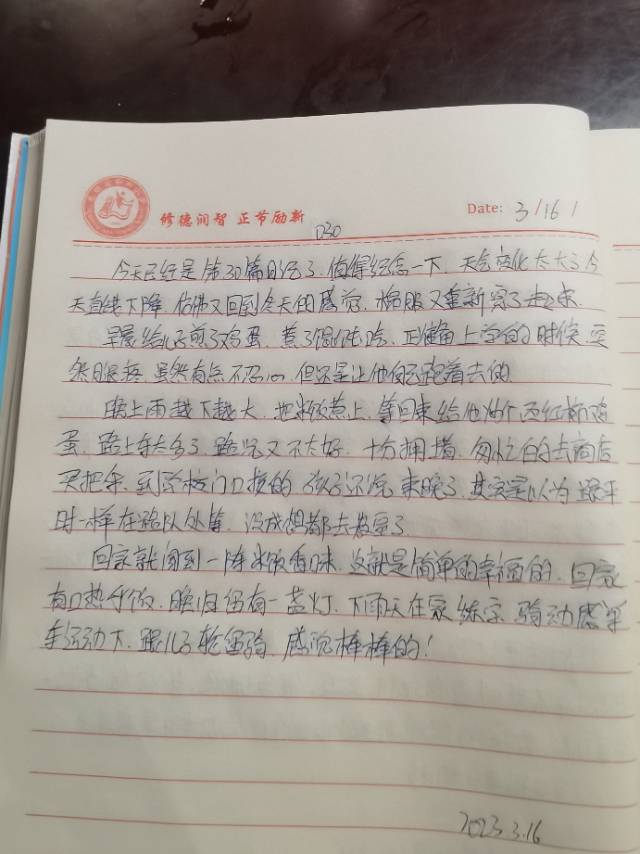 修德润智 正节励新
Date: 3/16/
D30
今天已经是第30篇日记了，值得纪念一下，天气变化太大了，今
天直线下降，仿佛又回到冬天的感觉，棉服又重新穿了起来。
早晨给儿子煎了鸡蛋，煮了馄饨吃，正准备上学的时候，突
然腿疼，虽然有点不忍心，但还是让他自己跑着去的。
晚上雨越下越大，把米饭煮上，等回来给他炒个西红柿鸡
蛋，路上车太多了，路况又不太好，十分拥堵，匆忙的去商店
买把伞，到学校门口接的，孩子还说来晚了，其实是以为跟平
时一样在路队处等，没成想都去教室了
回家就闻到一阵米饭香味，这就是简单的幸福的，回家
有口热乎饭，晚归留有一盏灯，下雨天在家练字，骑动感单
车运动下，跟儿子轮留骑，感觉棒棒的！
2023.3.16